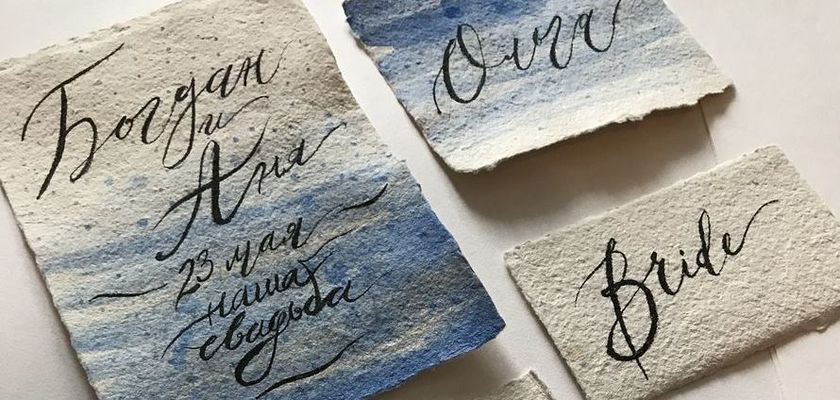 Богдан
и
Аня
23 мая
наша
свадьба
Ольга
Bride